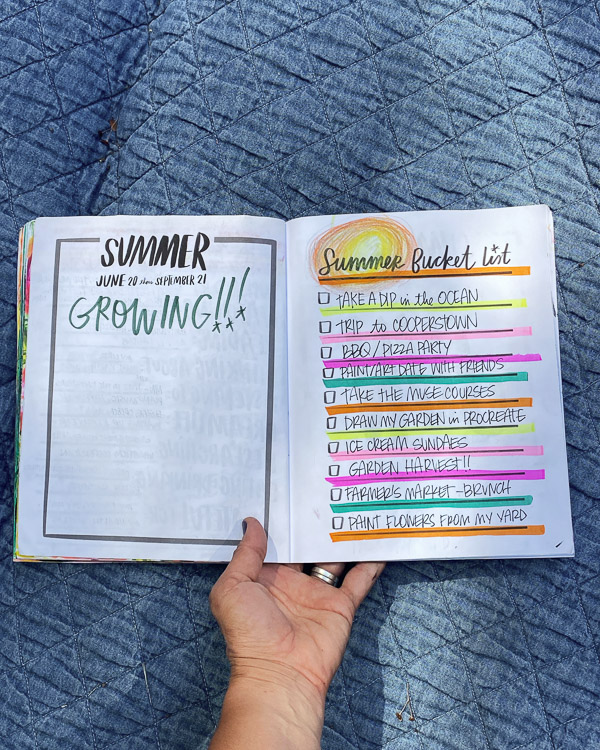 SUMMER
JUNE 20 thru SEPTEMBER 21
GROWING!!!
Summer Bucket list
TAKE A DIP in the OCEAN
TRIP to COOPERSTOWN
BBQ/PIZZA PARTY
PAINT/ART DATE WITH FRIENDS
TAKE THE MUSE COURSES
DRAW MY GARDEN in PROCREATE
ICE CREAM SUNDAES
GARDEN HARVEST!!
FARMER'S MARKET - BRUNCH
PAINT FLOWERS FROM MY YARD